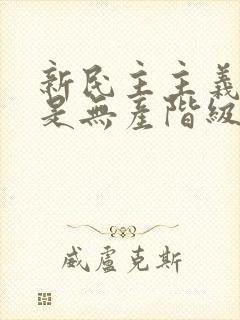 新民主主義
是無產階級
威盧克斯